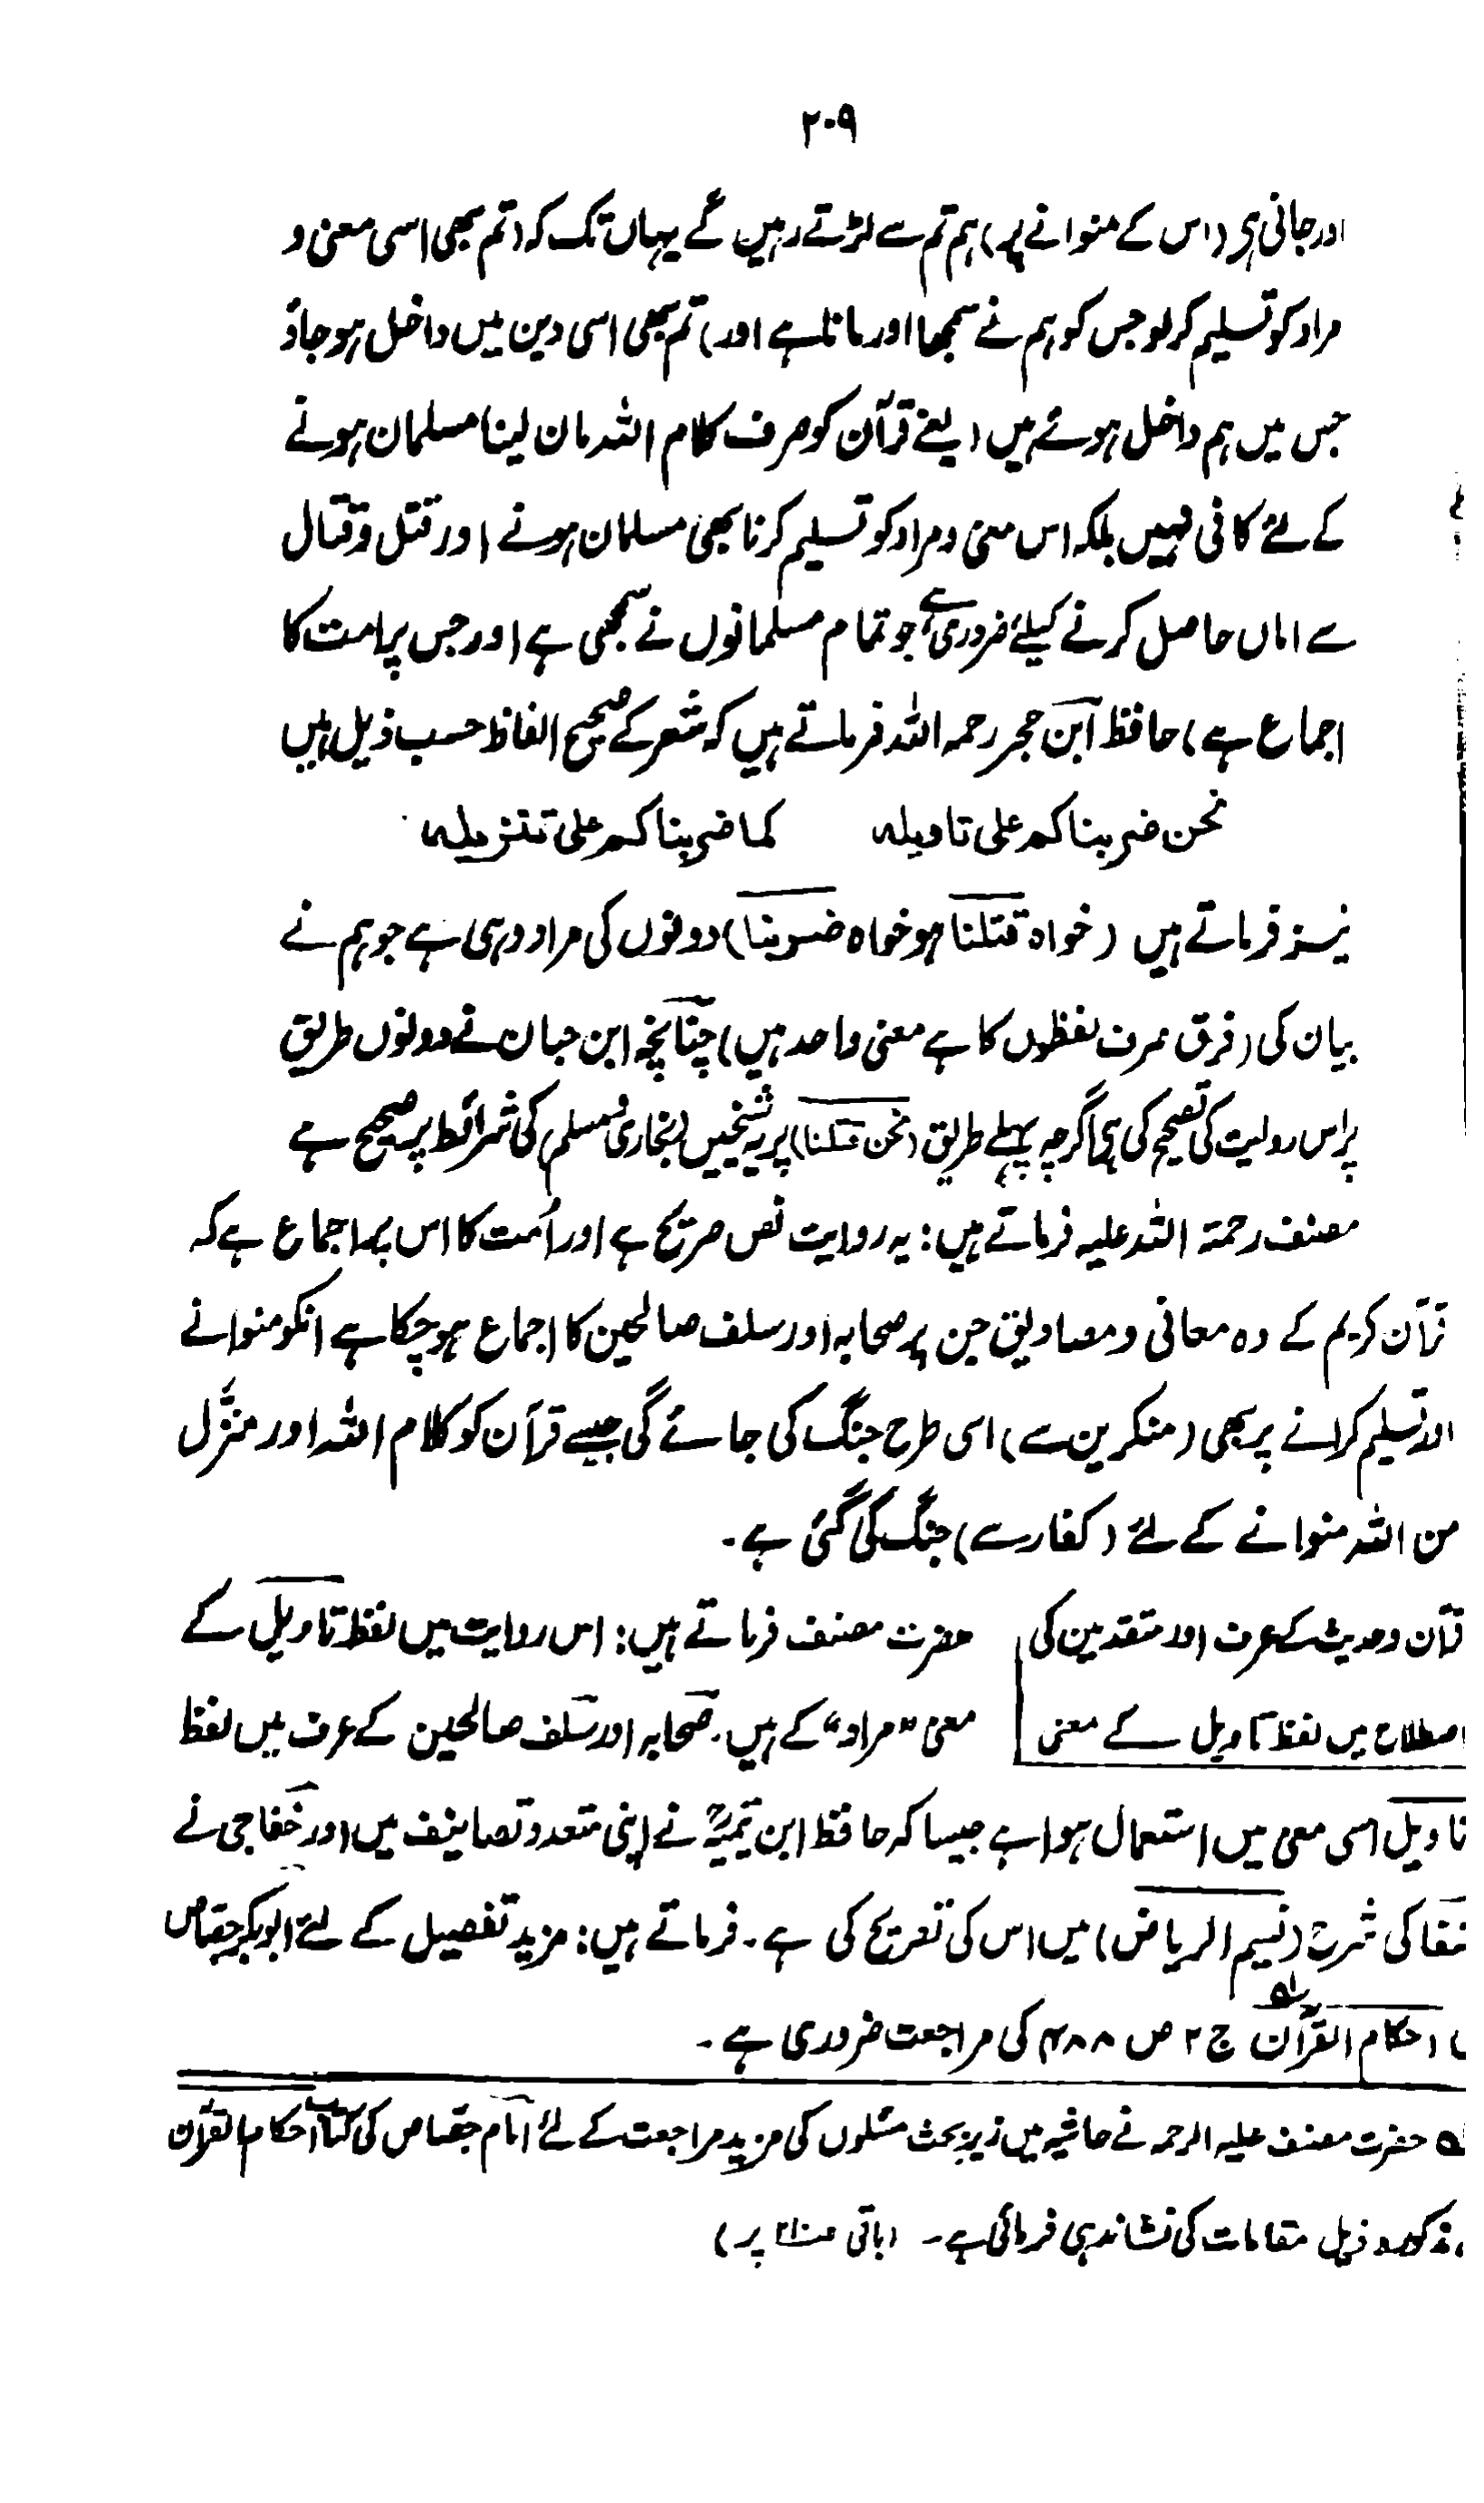 ۲۰۹
اور جانی ہی (اس کے منوانے پر) ہم تم سے لڑتے رہیں گے یہاں تک کہ (تم بھی اسی معنی و
مراد کو تسلیم کر لو جس کو ہم نے سمجھا اور مانا ہے اور) تم بھی اسی دین میں داخل ہو جاؤ
جس میں ہم داخل ہوئے ہیں (یعنے قرآن کو صرف کلام اللہ مان لینا مسلمان ہونے
کے لئے کافی نہیں بلکہ اس معنی و مراد کو تسلیم کرنا بھی مسلمان ہونے اور قتل و قتال
سے اماں حاصل کرنے کیلئے ضروری ہے جو تمام مسلمانوں نے سمجھی ہے اور جس پر امت کا
اجماع ہے) حافظ ابن حجر رحمہ اللہ فرماتے ہیں کہ شعر کے صحیح الفاظ حسب ذیل ہیں
نحن ضربناکم علی تاویلہ کما ضربناکم علی تنزیلہ
نیز فرماتے ہیں (خواہ قتلنا ہو خواہ ضربنا) دونوں کی مراد وہی ہے جو ہم نے
بیان کی (فرق صرف لفظوں کا ہے معنی واحد ہیں) چنانچہ ابن حبان نے دونوں طریق
پر اس روایت کی تصحیح کی ہی اگرچہ پہلے طریق (نحن قتلنا) پر یہ شیخین (بخاری و مسلم کی شرائط پر صحیح ہے
مصنف رحمۃ اللہ علیہ فرماتے ہیں: یہ روایت نص صریح ہے اور اُمت کا اس پر اجماع ہے کہ
قرآن کریم کے وہ معانی و مصادیق جن پر صحابہ اور سلف صالحین کا اجماع ہو چکا ہے انکو منوانے
اور تسلیم کرانے پر بھی (منکرین سے) اسی طرح جنگ کی جائے گی جیسے قرآن کو کلام اللہ اور منزَّل
من اللہ منوانے کے لئے (کفار سے) جنگ کی گئی ہے۔
قرآن و حدیث کے عرف اور متقدمین کی
اصطلاح میں لفظ تاویل کے معنی
حضرت مصنف فرماتے ہیں: اس روایت میں لفظ تاویل کے
معنی "مراد" کے ہیں۔ صحابہ اور سلف صالحین کے عرف میں لفظ
تاویل اسی معنی میں استعمال ہوا ہے جیسا کہ حافظ ابن تیمیہؒ نے اپنی متعدد تصانیف میں اور خفاجی نے
شفا کی شرح (نسیم الریاض) میں اس کی تصریح کی ہے۔ فرماتے ہیں: مزید تفصیل کے لئے ابو بکر جصاص
احکام القرآن ج ۲ ص ۴۸۸ کی مراجعت ضروری ہے۔
لہ حضرت مصنف علیہ الرحمہ نے حاشیہ میں زیر بحث مسئلوں کی مزید مراجعت کے لئے امام جصاص کی کتاب احکام القرآن
مذکورہ ذیل مقامات کی نشاندہی فرمائی ہے۔ (باقی صـ۲۱۰ پر)